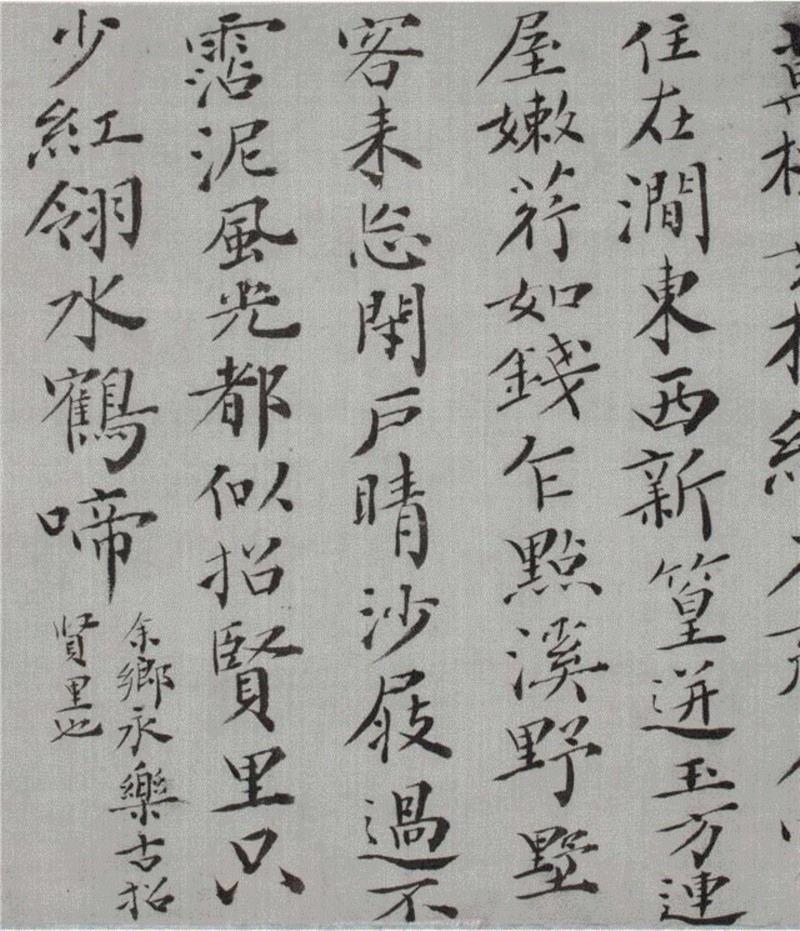 住在澗東西新篁迸玉方連
屋嫩荇如錢乍點溪野墅
客来忘閉戶晴沙屐過不
霑泥風光都似招賢里只
少紅翎水鶴啼
余鄉永樂古招
賢里也